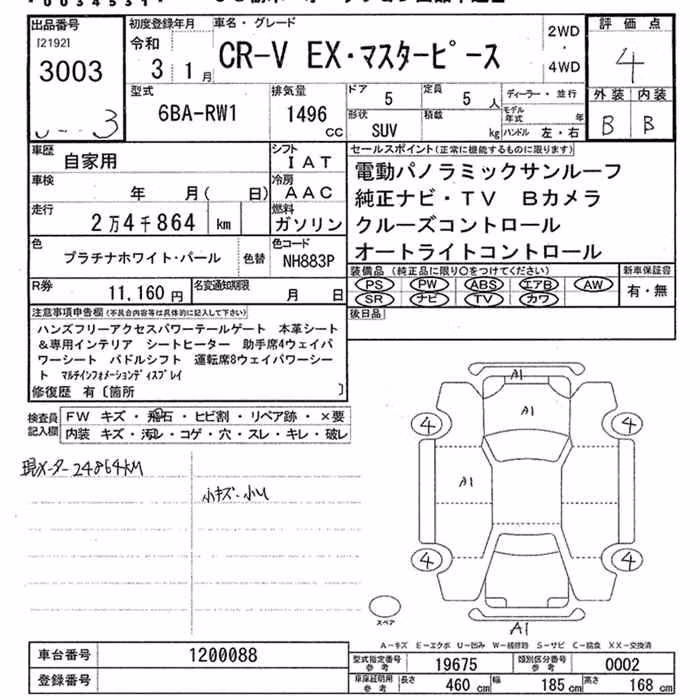 出品番号
[2192]
3003
3
初度登録年月
令和
3 1月
車名・グレード
CR-V EX・マスターピース
2WD
・
4WD
評価点
4
外装 内装
B B
型式
6BA-RW1
排気量
1496
cc
ドア
5
定員
5 人
形状
SUV
積載
kg
ディーラー・並行
モデル年式 年
ハンドル 左・右
車歴
自家用
シフト
I A T
車検
年 月( 日)
冷房
A A C
走行
2万4千864 km
燃料
ガソリン
色
プラチナホワイト・パール
色替
色コード
NH883P
R券
11,160 円
名変通知期限
月 日
セールスポイント(正常に機能するものに限ります)
電動パノラミックサンルーフ
純正ナビ・TV Bカメラ
クルーズコントロール
オートライトコントロール
装備品(純正品に限り○をつけてください)
PS PW ABS エアB AW
SR ナビ TV カワ
新車保証書
有・無
後日品
注意事項申告欄(不具合内容等は具体的に記入して下さい)
ハンズフリーアクセスパワーテールゲート 本革シート
&専用インテリア シートヒーター 助手席4ウェイパ
ワーシート パドルシフト 運転席8ウェイパワーシー
ト マルチインフォメーションディスプレイ
修復歴 有〔箇所 〕
検査員記入欄
FW キズ・飛石・ヒビ割・リペア跡・×要
内装 キズ・汚れ・コゲ・穴・スレ・キレ・破レ
現メーター24864KM
小キズ・小U
A1
A1
A1
4 4
4 4
A1
スペア
A-キズ E-エクボ U-凹み W-補修跡 S-サビ C-腐食 XX-交換済
車台番号
1200088
登録番号
型式指定番号
参考
19675
類別区分番号
参考
0002
車庫証明用
参考
長さ 460 cm 幅 185 cm 高さ 168 cm